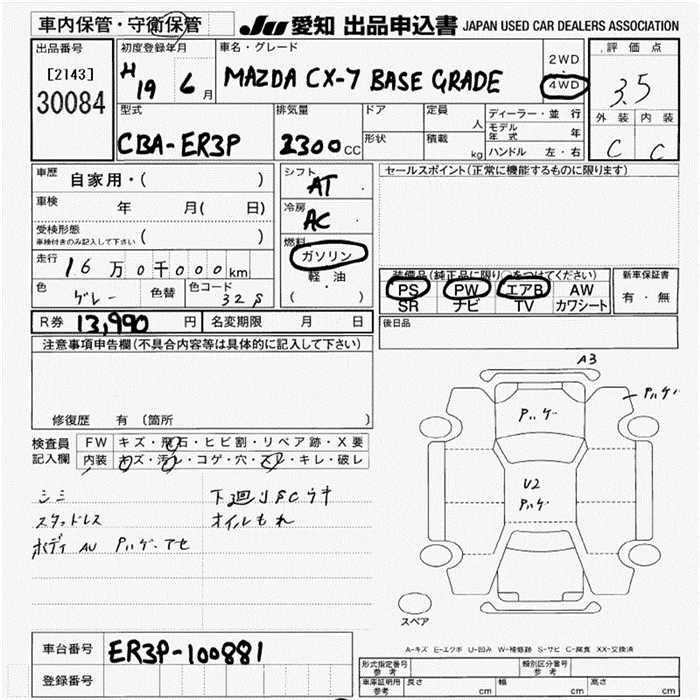 車内保管・守衛保管
JU 愛知 出品申込書 JAPAN USED CAR DEALERS ASSOCIATION
出品番号
[2143]
30084
初度登録年月
H19 6月
車名・グレード
MAZDA CX-7 BASE GRADE
2WD
4WD
評価点
3.5
外装 内装
C C
型式
CBA-ER3P
排気量
2300cc
ドア
形状
定員 人
積載 kg
ディーラー・並行
モデル年式 年
ハンドル 左・右
車歴 自家用・( )
車検 年 月( 日)
受検形態
車検付きのみ記入して下さい ( )
走行 16万0千000km
色 グレー 色替 色コード 32S
シフト AT
冷房 AC
燃料 ガソリン
軽・油
( )
セールスポイント(正常に機能するものに限ります)
装備品(純正品に限り○をつけてください)
PS PW エアB AW
SR ナビ TV カワシート
新車保証書
有・無
R券 13,990円 名変期限 月 日
後日品
注意事項申告欄(不具合内容等は具体的に記入して下さい)
修復歴 有 (箇所 )
検査員記入欄
FW キズ・飛石・ヒビ割・リペア跡・X要
内装 キズ・汚れ・コゲ・穴・スレ・キレ・破レ
シミ
スタッドレス
ボディ AU Pハゲ・アセ
下廻りSCウキ
オイルもれ
A3
Pハゲ
Pハゲ
U2
Pハゲ
スペア
A-キズ E-エクボ U-凹み W-補修跡 S-サビ C-腐食 XX-交換済
車台番号 ER3P-100881
登録番号
形式指定番号 参考
類別区分番号 参考
車庫証明用 参考 長さ cm 幅 cm 高さ cm